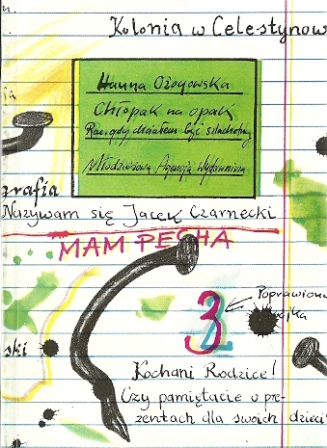 Kolonia w Celestynow
Hanna Ożogowska
Chłopak na opak
Raz, gdy chciałem być szlachetny
Młodzieżowa Agencja Wydawnicza
grafia
Nazywam się Jacek Czarnecki
MAM PECHA
3
Poprawiona
ójka
ski
Kochani Rodzice!
Czy pamiętacie o pre-
zentach dla swoich dzieci